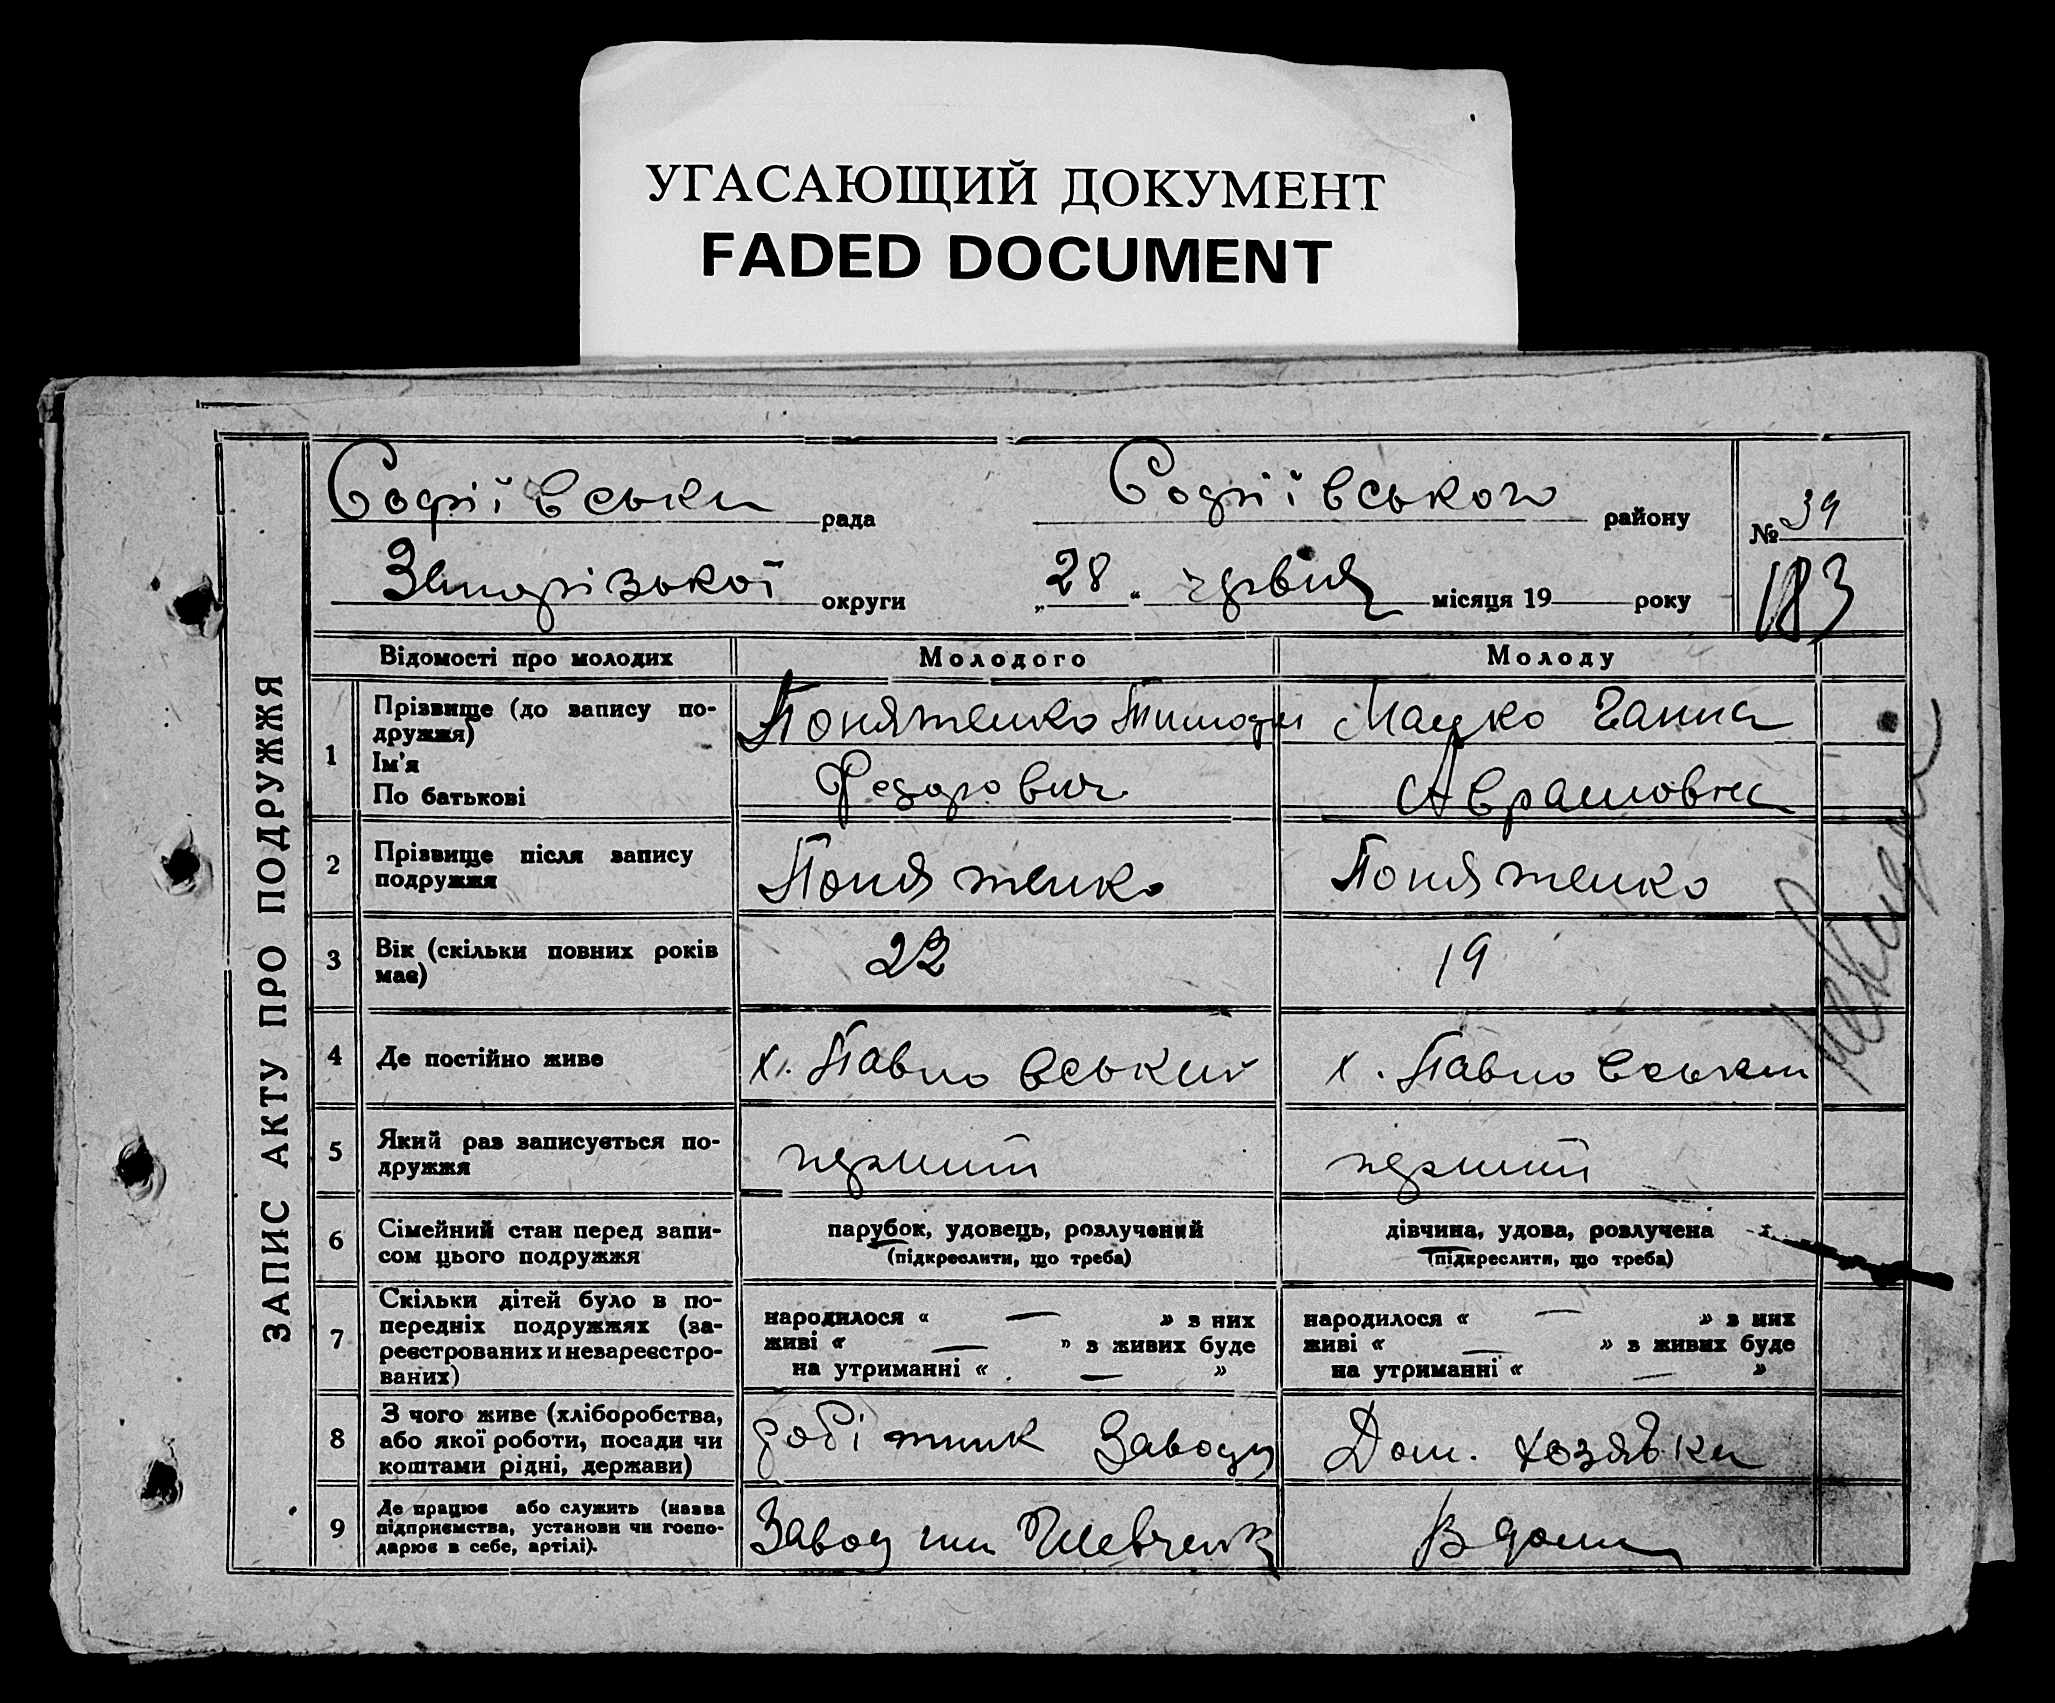 УГАСАЮЩИЙ ДОКУМЕНТ
FADED DOCUMENT
ЗАПИС АКТУ ПРО ПОДРУЖЖЯ
Софіївська рада Софіївського району № 39
Запорізької округи „28“ червня місяця 19 року 183
Відомості про молодих Молодого Молоду
1 Прізвище (до запису по-
дружжя)
Ім'я
По батькові
Понятенко Тимофій Мацко Ганна
Федорович Аврамовна
2 Прізвище після запису
подружжя
Понятенко Понятенко
3 Вік (скільки повних років
має)
22 19
4 Де постійно живе х. Павловський х. Павловський
5 Який раз записується по-
дружжя
перший перший
6 Сімейний стан перед запи-
сом цього подружжя
парубок, удовець, розлучений дівчина, удова, розлучена
(підкреслити, що треба) (підкреслити, що треба)
7 Скільки дітей було в по-
передніх подружжях (за-
реєстрованих и незареєстро-
ваних)
народилося « — » з них народилося « — » з них
живі « — » з живих буде живі « — » з живих буде
на утриманні « — » на утриманні « — »
8 З чого живе (хліборобства,
або якої роботи, посади чи
коштами рідні, держави)
робітник Заводу Дом. хозяйка
9 Де працює або служить (назва
підприємства, установи чи госпо-
дарює в себе, артілі).
Завод им Шевченк В дома